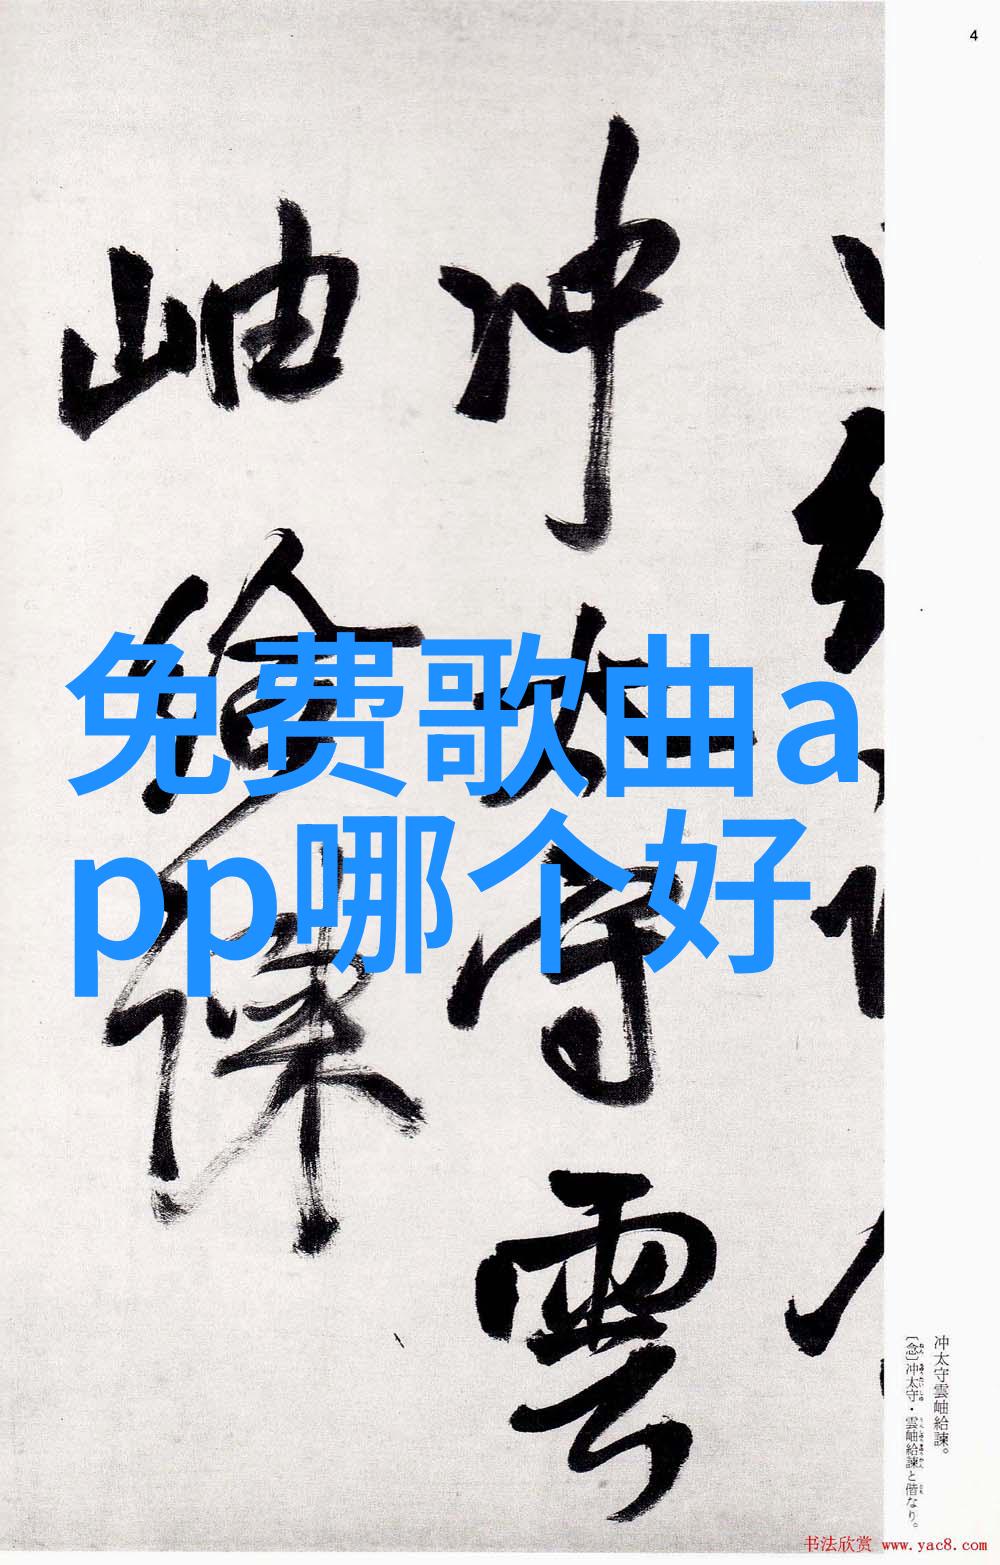 4
冲太守雲
岫給諫
免费歌曲a
pp哪个好
冲太守雲岫給諫。
〔念〕冲太守・雲岫給諫と偕なり。
书法欣赏 www.yac8.com